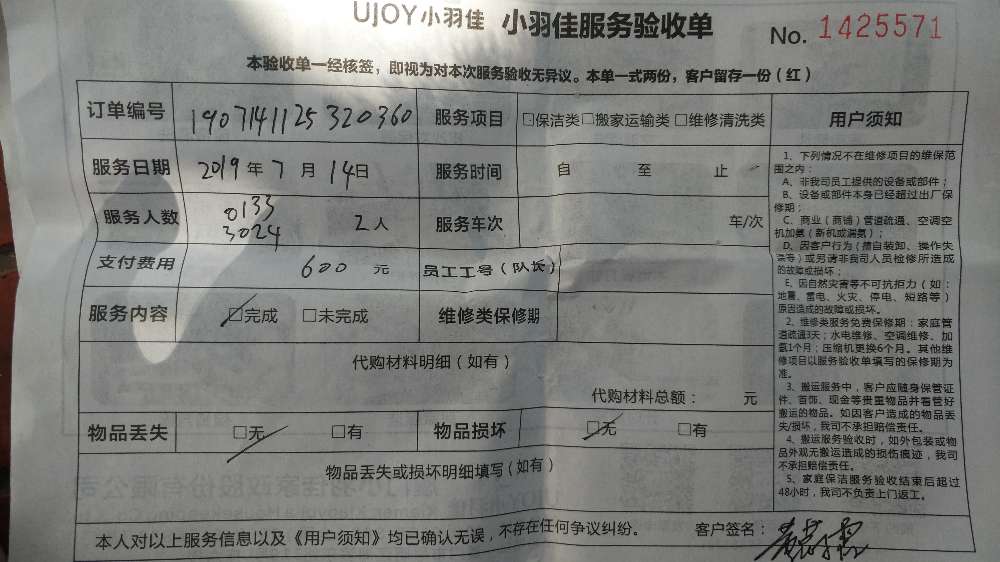 UJOY小羽佳 小羽佳服务验收单 No. 1425571
本验收单一经核签，即视为对本次服务验收无异议。本单一式两份，客户留存一份（红）
订单编号 190714112532036​0 服务项目 □保洁类□搬家运输类□维修清洗类
服务日期 2019年7月14日 服务时间 自 至 止
服务人数 0133 3024 2人 服务车次 车/次
支付费用 600 元 员工工号（队长）
服务内容 ☑完成 □未完成 维修类保修期
代购材料明细（如有）
代购材料总额： 元
物品丢失 ☑无 □有 物品损坏 ☑无 □有
物品丢失或损坏明细填写（如有）
本人对以上服务信息以及《用户须知》均已确认无误，不存在任何争议纠纷。 客户签名：
用户须知
1、下列情况不在维修项目的维保范
围之内：
A、非我司员工提供的设备或部件；
B、设备或部件本身已经超过出厂保
修期；
C、商业（商铺）管道疏通、空调空
机加氨（新机或漏氨）；
D、因客户行为（擅自装卸、操作失
误等）或另请非我司人员检修所造成
的故障或损坏；
E、因自然灾害等不可抗拒力（如：
地震、雷电、火灾、停电、短路等）
原因造成的故障或损坏。
2、维修类服务免费保修期：家庭管
道疏通3天；水电维修、空调维修、加
氨1个月；压缩机更换6个月。其他维
修项目以服务验收单填写的保修期为
准。
3、搬运服务中，客户应随身保管证
件、首饰、现金等贵重物品并看管好
搬运的物品。如因客户造成的物品丢
失/损坏，我司不承担赔偿责任。
4、搬运服务验收时，如外包装或物
品外观无搬运造成的损伤痕迹，我司
不承担赔偿责任。
5、家庭保洁服务验收结束后超过
48小时，我司不负责上门返工。